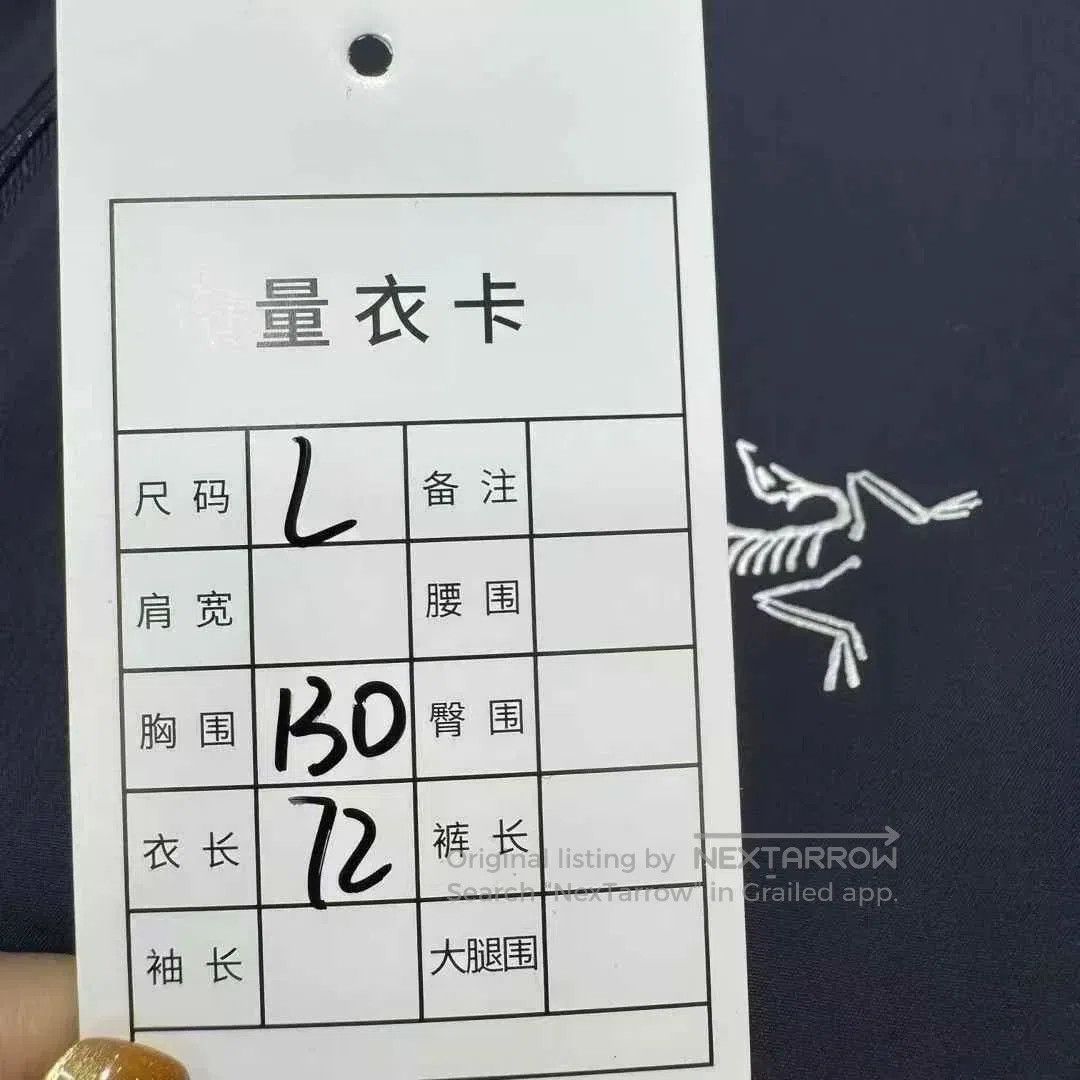 量衣卡
尺码 L 备注
肩宽 腰围
胸围 130 臀围
衣长 72 裤长
袖长 大腿围
Original listing by NEXTARROW
Search “NexTarrow” in Grailed app.